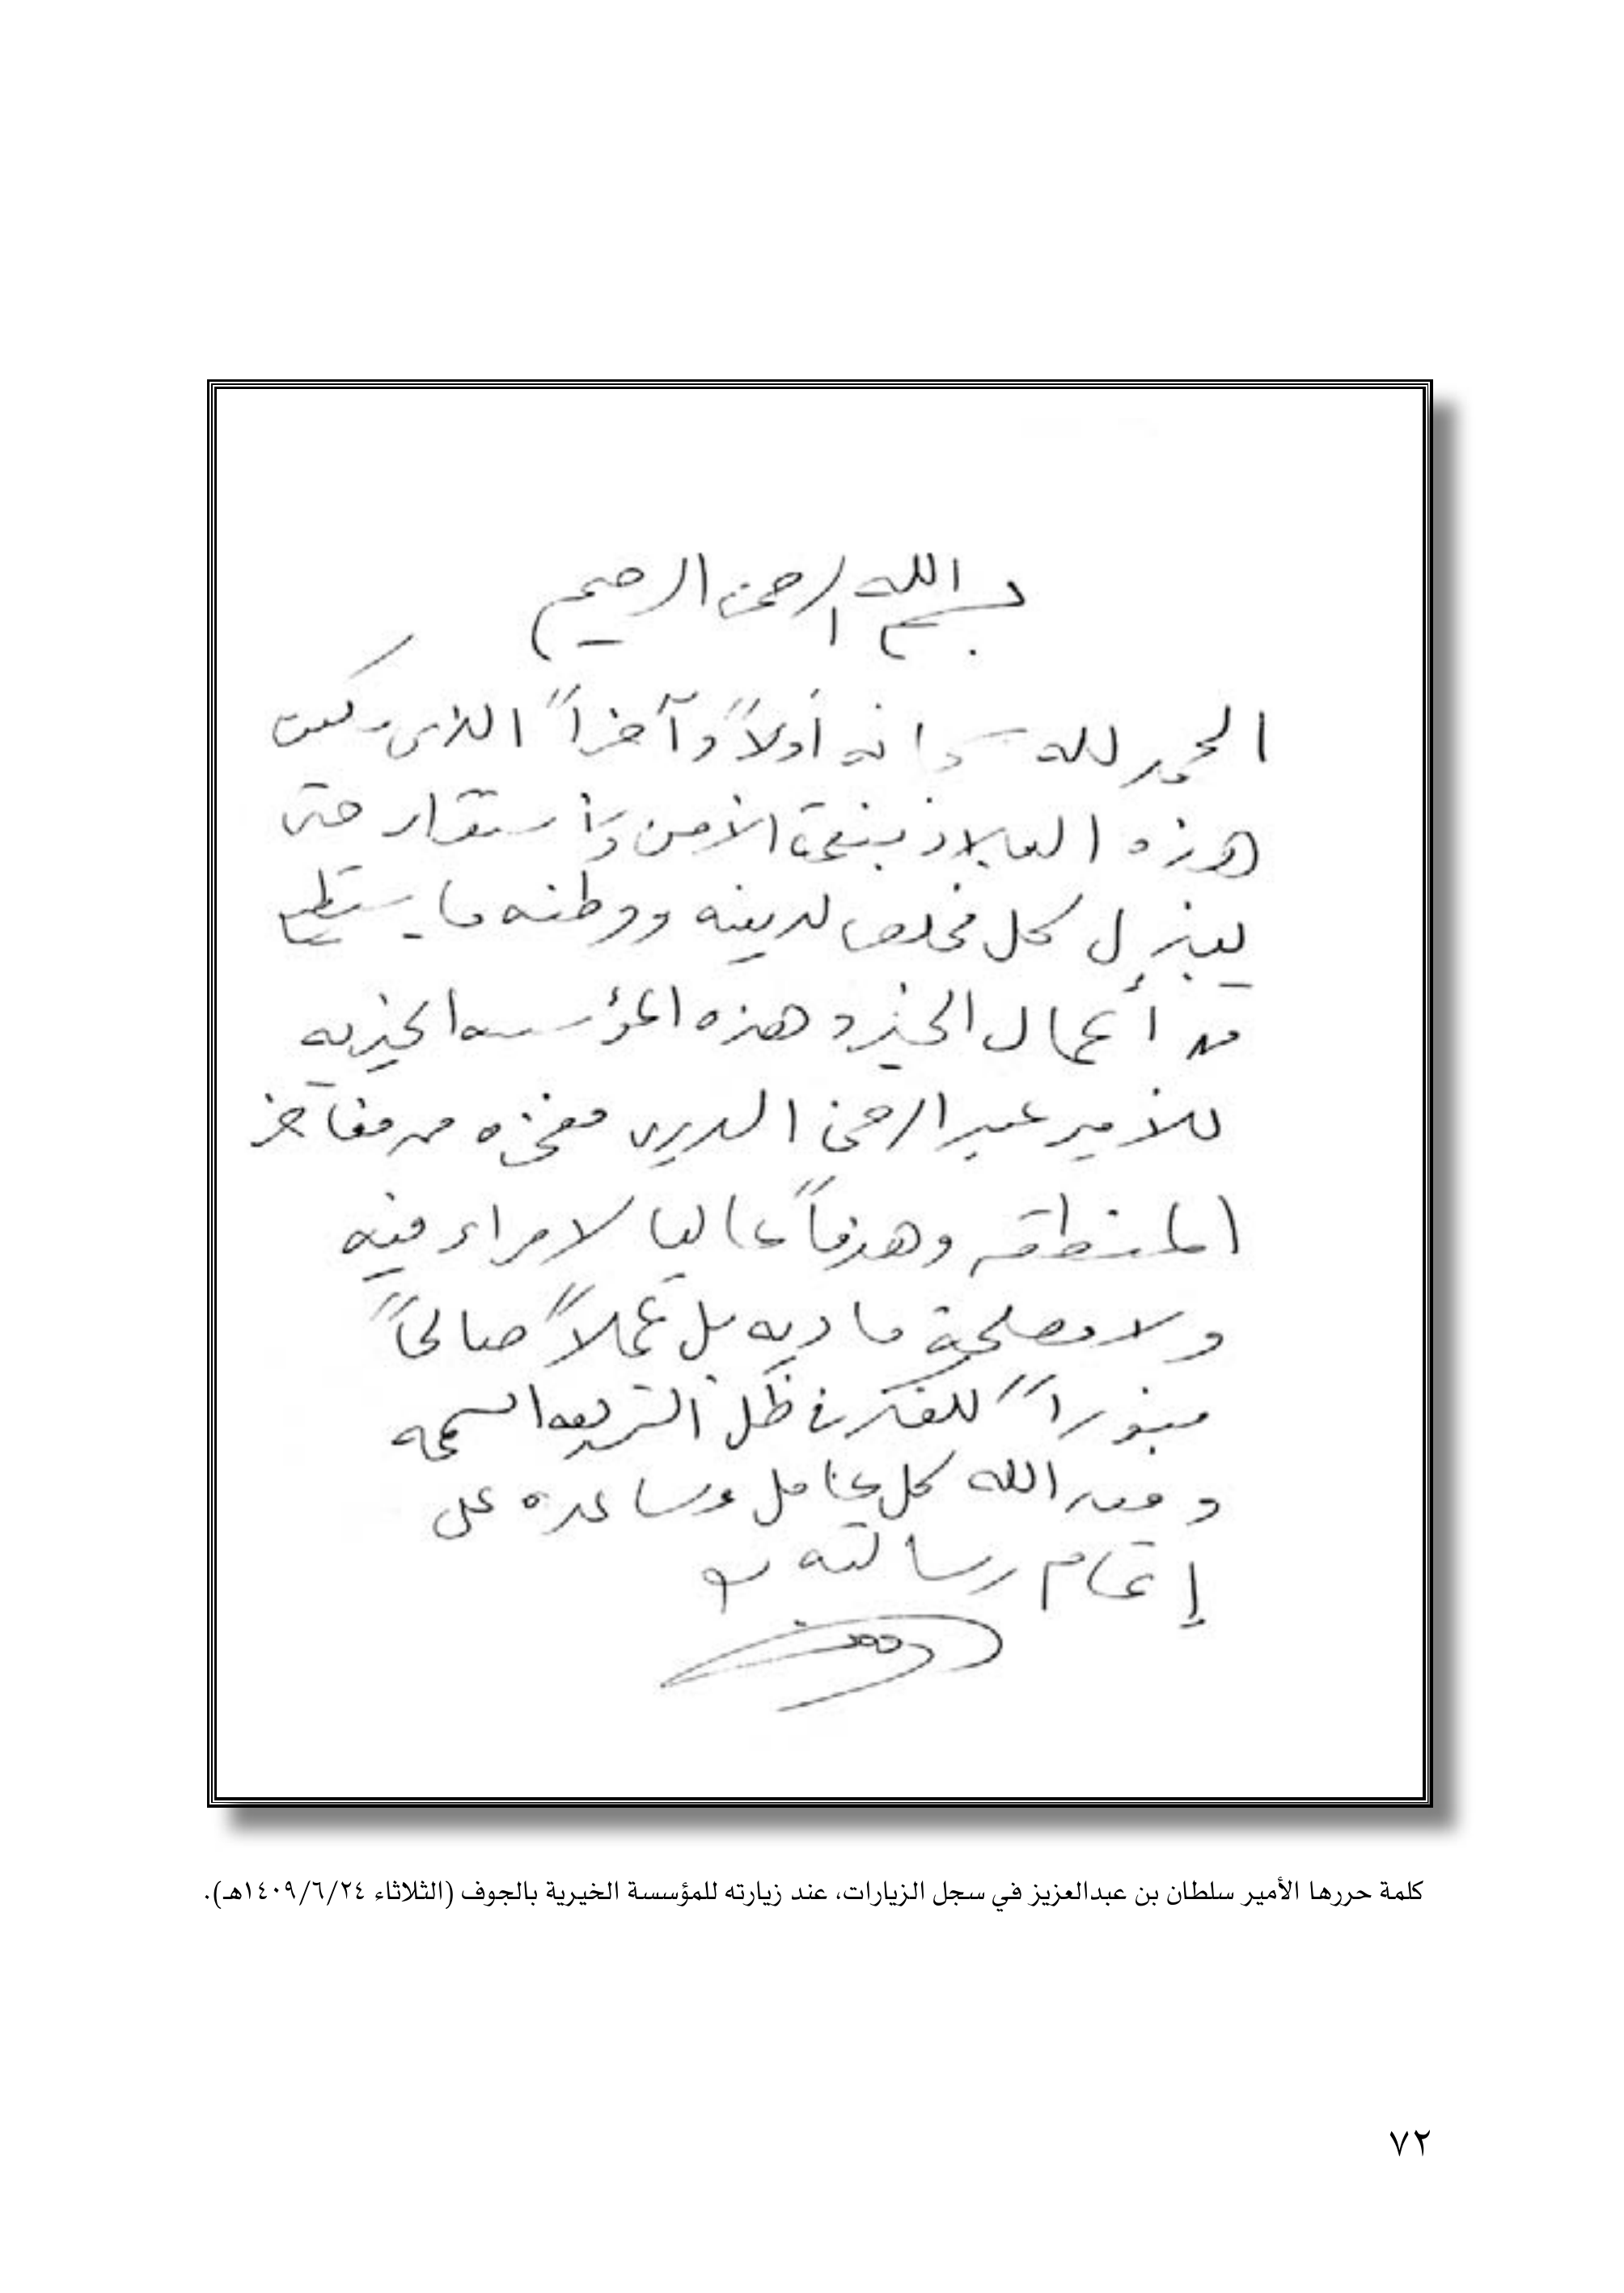 بسم الله الرحمن الرحيم
الحمد لله سبحانه أولاً وآخراً الذي
هذه البلاد بنعمة الأمن والاستقرار حتى
يبذل كل مخلص لدينه ووطنه ما يستطيع
من أعمال الخير وهذه المؤسسه الخيريه
للأمير عبدالرحمن السديري مفخره من مفاخر
المنطقه وهدفاً عاليا لا مراء فيه
ولا مصلحة ماديه بل عملاً صالحاً
منوراً للفكر في ظل الشريعه السمحه
ووفق الله كل عامل وساعده على
إتمام رسالته
كلمة حررها الأمير سلطان بن عبدالعزيز في سجل الزيارات، عند زيارته للمؤسسة الخيرية بالجوف (الثلاثاء ١٤٠٩/٦/٢٤هـ).
٧٢